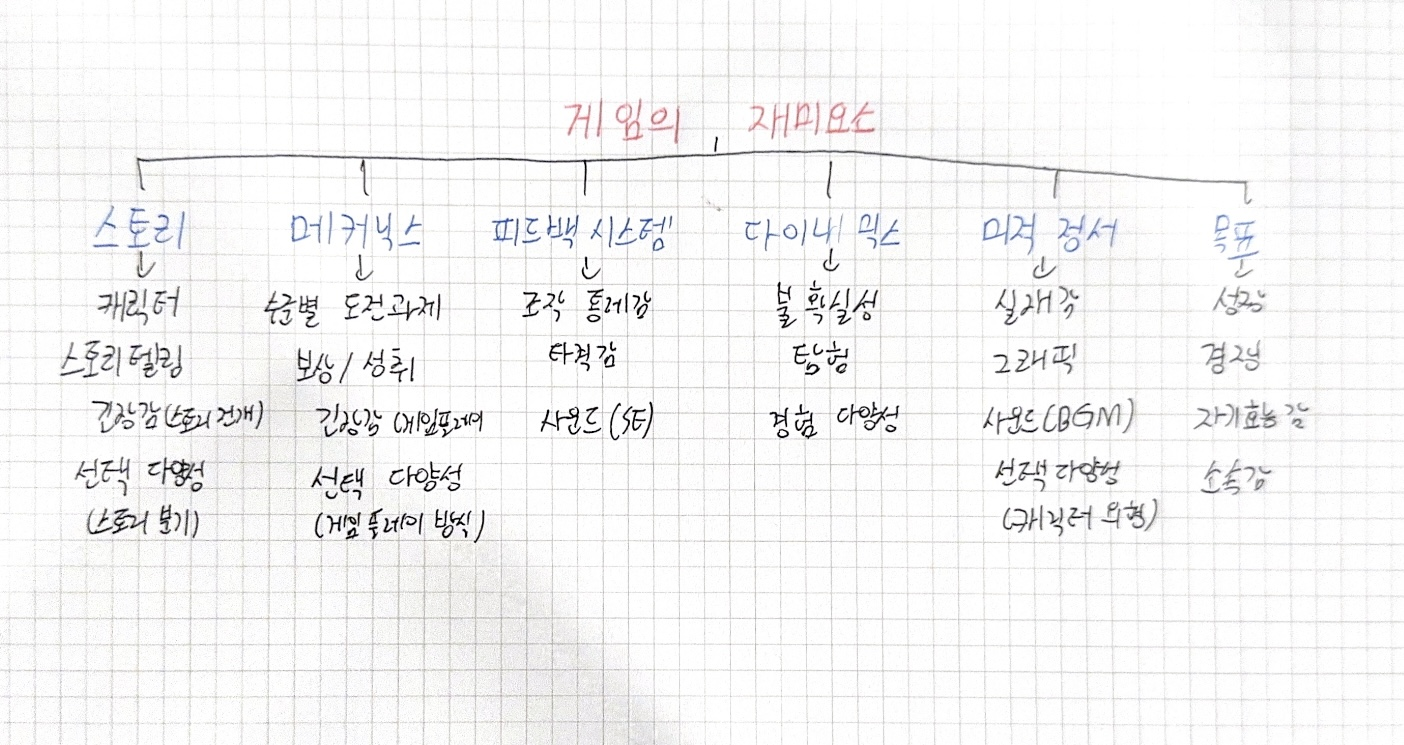 게임의 재미요소
스토리
캐릭터
스토리텔링
긴장감(스토리 전개)
선택 다양성
(스토리 분기)
메커닉스
수준별 도전과제
보상/성취
긴장감 (게임플레이
선택 다양성
(게임 플레이 방식)
피드백 시스템
조작 통제감
타격감
사운드(SE)
다이내믹스
불확실성
탐험
경험 다양성
미적 정서
실재감
그래픽
사운드(BGM)
선택 다양성
(캐릭터 외형)
목표
성장
경쟁
자기효능감
소속감